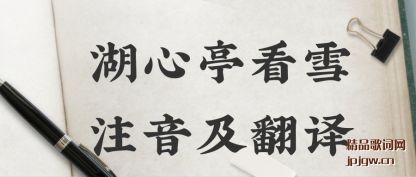 湖心亭看雪
注音及翻译
精品歌词网
jpjgw.cn